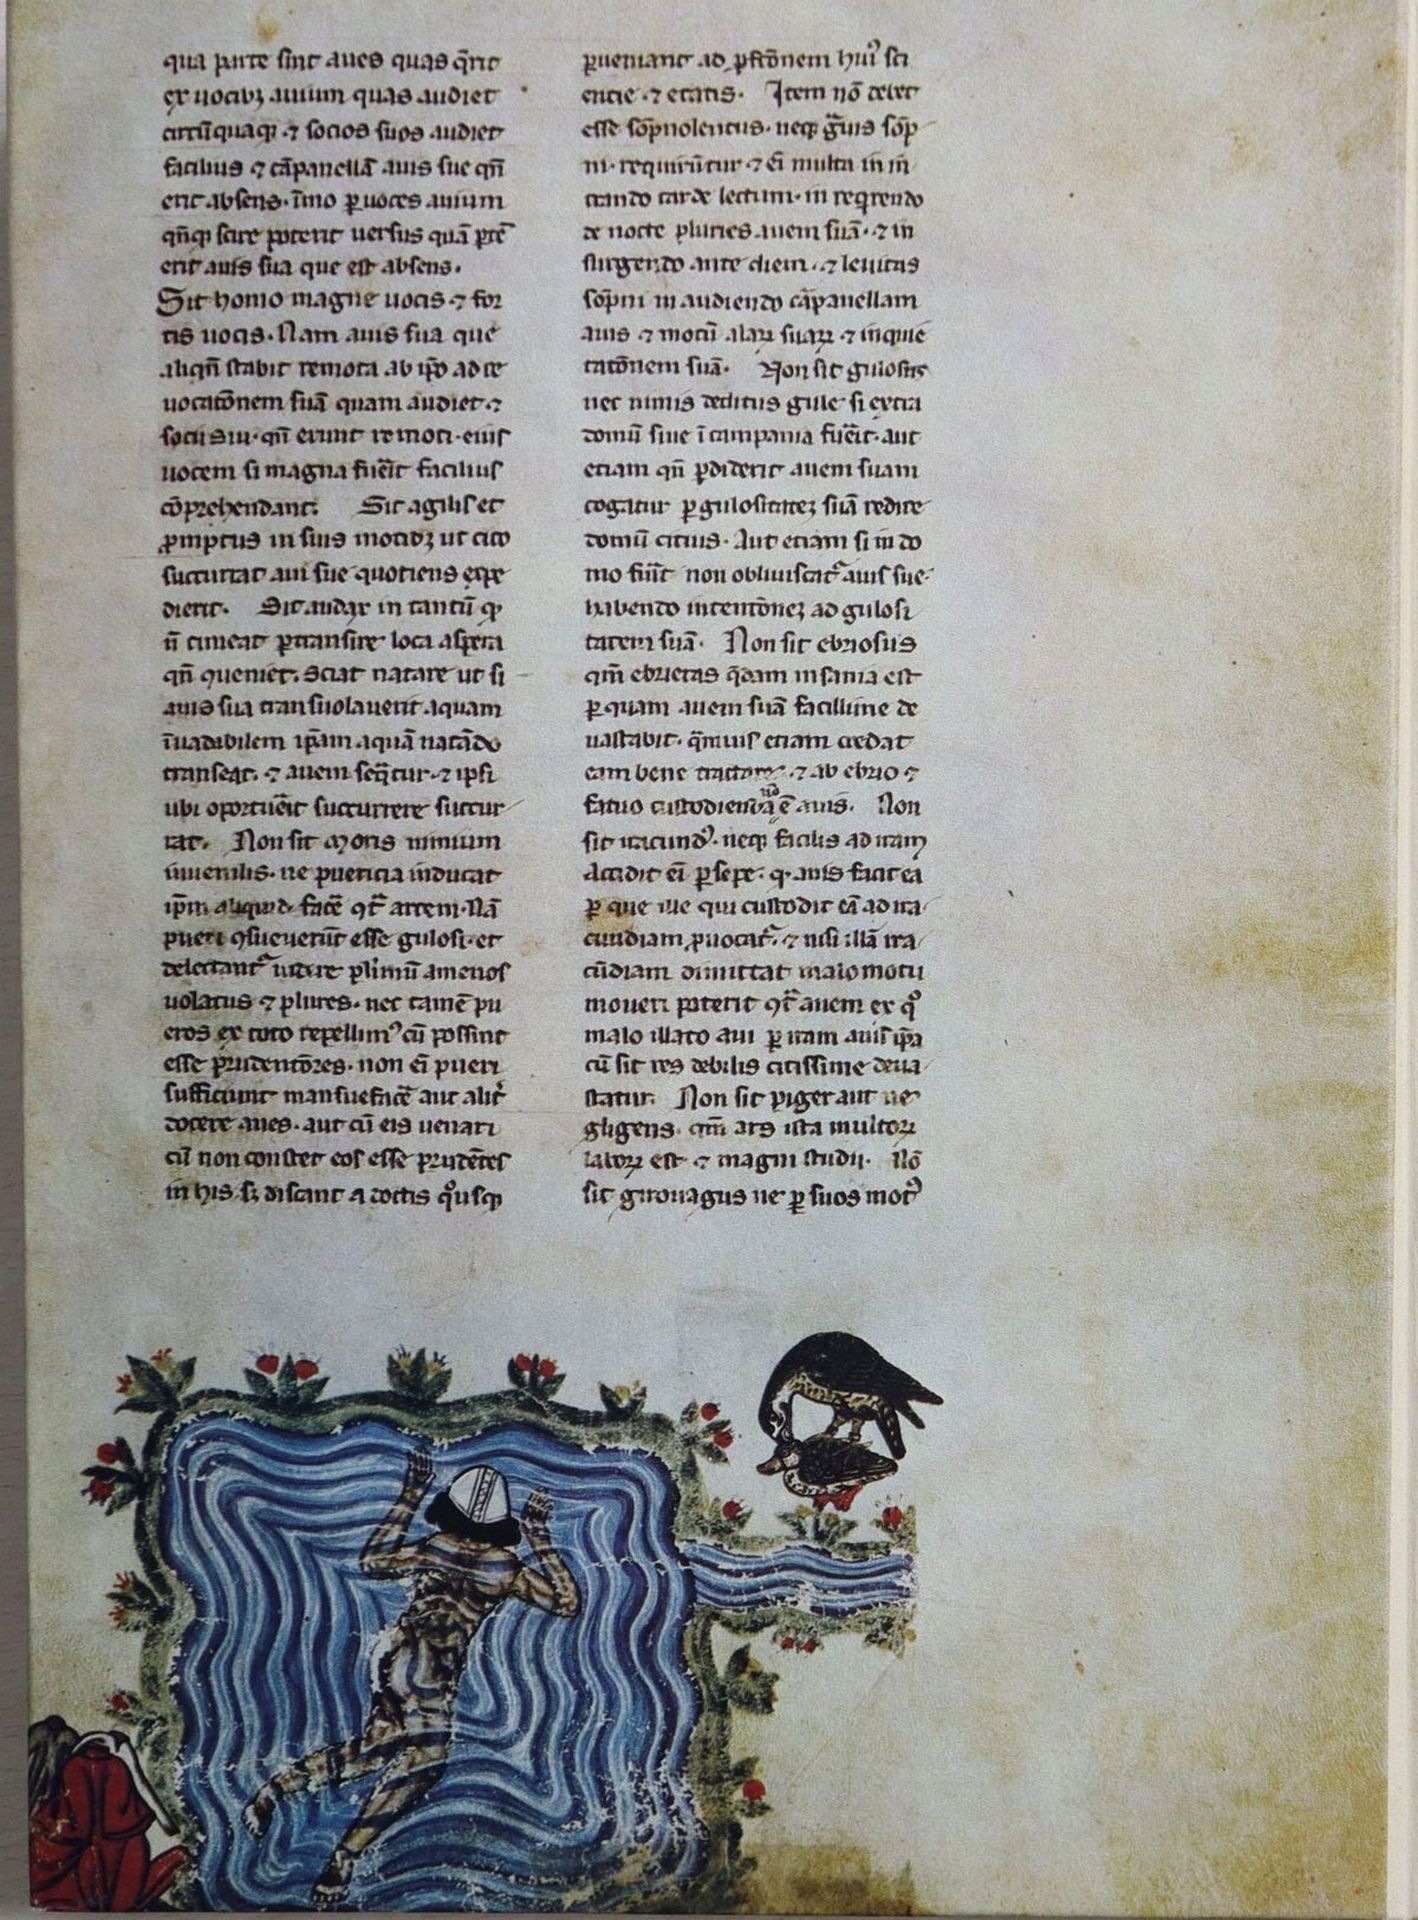 qua parte sint aues quas q̄rit
ex uocibꝫ auium quas audiet
circūquaqꝫ ⁊ socios suos audiet
facilius ⁊ cāpanellā auis sue qn̄
erit absens· īmo ꝑ uoces auium
qn̄qꝫ scire poterit uersus quā ꝑtē
erit auis sua que est absens.
Sit homo magne uocis ⁊ for
tis uocis· Nam auis sua que
aliqn̄ stabit remota ab ip̄o ad re
uocatōnem suā quam audiet ⁊
socii sui· qn̄ erunt remoti· eius
uocem si magna fu̅it facilius
cōprehendant. Sit agilis et
ꝓmptus in suis motibꝫ ut cito
succurrat aui sue quotiens expe
dierit. Sit audax in tantū ꝙ
n̄ timeat ꝑtransire loca aspera
qn̄ ꝯueniet. Sciat natare ut si
auis sua transuolauerit aquam
īuadibilem ip̄am aquā natādo
transeat. ⁊ auem seq̄tur· ⁊ ipsi
ubi oportuēit succurrere succur
rat. Non sit moris nimium
iuuenilis· ne puericia inducat
ip̄m aliquid facē ꝯt̄ artem· Nā
pueri ꝯsueuerūt esse gulosi· et
delectant᷑ uidere pl̄imū amenos
uolatus ⁊ plures· nec tamē pu
eros ex toto repellimꝰ cū possint
esse prudentōres· non ei̅ pueri
sufficiunt mansuefacē aut alit̄
docere aues· aut cū eis uenari
cū non constet eos esse prudētes
in his sꝫ discant a doctis qͦusqꝫ
ꝑueniant ad ꝑfc̄ōnem huiꝰ sci
encie· ⁊ etatis· Item nō debet
esse sōpnolentus· neqꝫ g̅uis sōp
ni· requirūtur ⁊ ei̅ multa in in
trando tarde lectum· in req̄rendo
de nocte pluries auem suā· ⁊ in
surgendo ante diem· ⁊ leuitas
sōpni in audiendo cāpanellam
auis ⁊ motū alaꝝ suaꝝ ⁊ inquie
tatōnem suā· Non sit gulosus
nec nimis deditus gule si extra
domū siue ī campania fuēit· aut
etiam qn̄ ꝑdiderit auem suam
cogatur ꝑ gulositateꝫ suā redire
domū citius· Aut etiam si in do
mo fūit non obliuiscat᷑ auis sue
habendo intentōneꝫ ad gulosi
tatem suā· Non sit ebriosus
qm̄ ebrietas q̄dam insania est
ꝑ quam auem suā facillime de
uastabit· q̄muis etiam credat
eam bene tractare ⁊ ab ebrio ⁊
fatuo custodienda nō ē auis. Non
sit iracundꝰ· neqꝫ facilis ad iram
Accidit ei̅ ꝑsepe· ꝙ auis facit ea
ꝑ que ille qui custodit eā ad ira
cundiam ꝓuocat᷑· ⁊ nisi illā ira
cūdiam dimittat malo motu
moueri poterit ꝯt̄ auem ex qͦ
malo illato aui ꝑ iram auis ip̄a
cū sit res debilis citissime deua
statur. Non sit piger aut ne
gligens· qm̄ ars ista multoꝝ
laboꝝ est ⁊ magni studii· Nō
sit girouagus ne ꝑ suos motꝰ